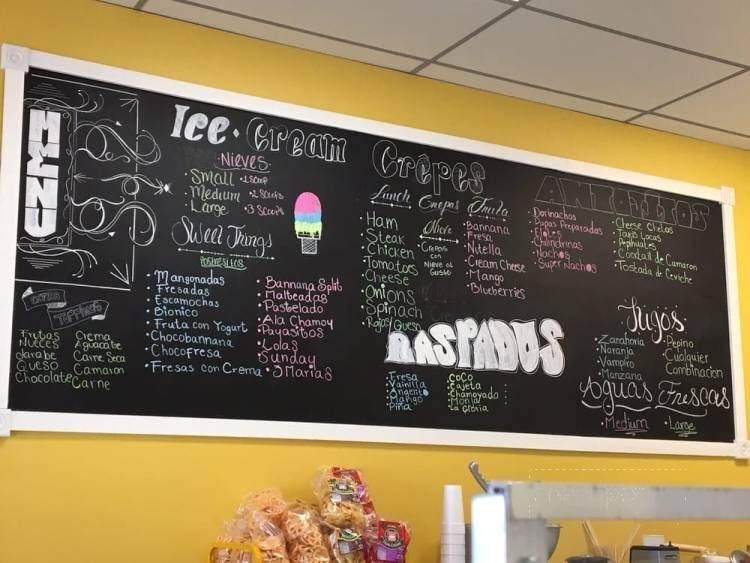 MENU
Ice-Cream
Nieves
Small • 1 Scoop
Medium • 2 Scoops
Large • 3 Scoops
Sweet Things
• Mangonadas
• Fresadas
• Escamochas
• Bionico
• Fruta con Yogurt
• Chocobannana
• Chocofresa
• Fresas con Crema
• Bannana Split
• Malteadas
• Pastelado
• Ala Chamoy
• Payasitos
• Lolas
• Sunday
• 3 Marias
Extra
Toppings
Frutas
Nueces
Jarabe
Queso
Chocolate
Crema
Aguacate
Carne Seca
Camaron
Carne
Crêpes
Lunch
• Ham
• Steak
• Chicken
• Tomatoes
• Cheese
• Onions
• Spinach
• Rajas/Queso
Crepas
Nieve
• Crepas
con
Nieve de
Gusto
Fruta
• Bannana
• Fresa
• Nutella
• Cream Cheese
• Mango
• Blueberries
RASPADOS
• Fresa
• Vainilla
• Angelito
• Mango
• Piña
• Coco
• Cajeta
• Chamoyado
ANTOJITOS
• Dorinachos
• Papas Preparadas
• Elotes
• Chicharrinas
• Nachos
• Super Nachos
• Cheese Chetos
• Takis Locas
• Pepihuates
• Cocktail de Camaron
• Tostada de Ceviche
Jugos
• Zanahoria
• Naranja
• Vampiro
• Manzana
• Pepino
• Cualquier
Combinacion
Aguas Frescas
• Medium
• Large